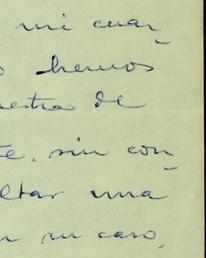 mi cuar-
s hemos
uestra de
te, sin con-
ltar una
n su caso,